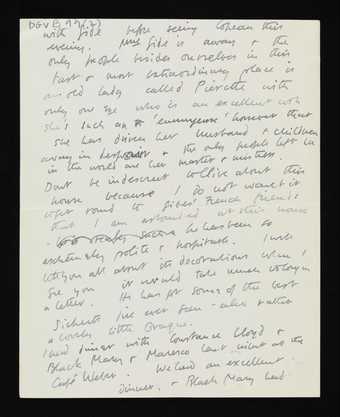 with Gide before seeing Copeau this
evening. Mrs Gide is away & the
only people besides ourselves in this
vast & most extraordinary place is
an old lady called Pierette with
only one eye who is an excellent cook
she's such an 'emmerjeuse' however that
she has driven her husband & children
away in despair & the only people left
in the world are her master & mistress.
Don't be indiscreet to Clive about this
house because I do not want it
to get round to Gides' French friends
that I am astounded at their house
- he has been so
extremely polite & hospitable. I will
tell you all about its decorations when I
see you it would take much too long in
a letter. He has got some of the best
Sickerts I've ever seen - also rather
a lovely little Braque.
I had dinner with Constance Lloyd &
Black Mary & Maresco last night at the
Café Weber. We had an excellent
dinner. & Black Mary had